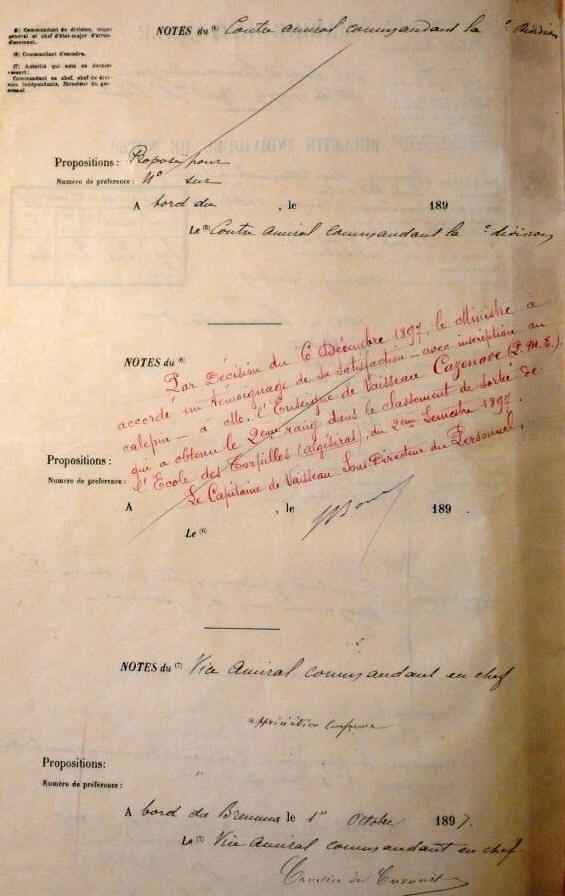 (5) Commandant de division, major
général et chef d'état-major d'arron-
dissement.
(6) Commandant d'escadre.
(7) Autorité qui note en dernier
ressort:
Commandant en chef, chef de divi-
sion indépendante, Directeur du per-
sonnel.
NOTES du (5) Contre amiral commandant la e Division
Propositions: Proposé pour
Numéro de préférence: N° sur
A bord du , le 189
Le (5) Contre amiral commandant la e division
NOTES du (6)
Par Décision du 6 Décembre 1897, le Ministre a
accordé un témoignage de Sa Satisfaction - avec inscription au
calepin - à Mr. l'Enseigne de Vaisseau Cazenave (P.M.E.),
qui a obtenu le 2eme rang dans le classement de Sortie de
l'Ecole des Torpilles (algésiras), du 2eme Semestre 1897.
Le Capitaine de Vaisseau Sous-Directeur du Personnel,
Propositions:
Numéro de préférence:
A , le 189 .
Le (6)
NOTES du (7) Vice Amiral commandant en chef
appréciation conforme
Propositions: "
Numéro de préférence:
A bord du Brennus le 1er Octobre 1897.
Le (7) Vice Amiral commandant en chef